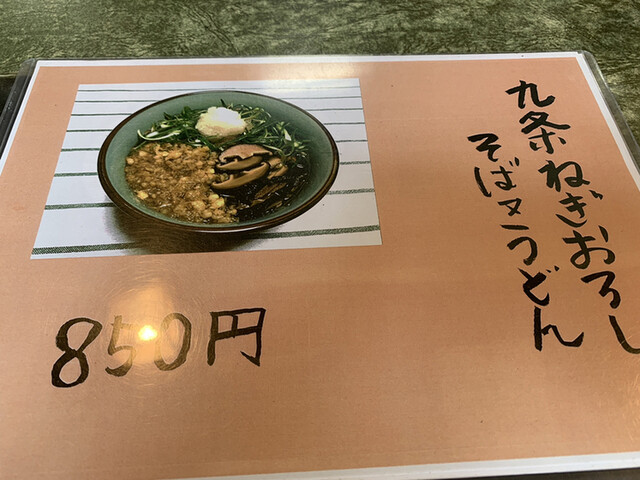 九条ねぎおろし
そば又うどん
850円